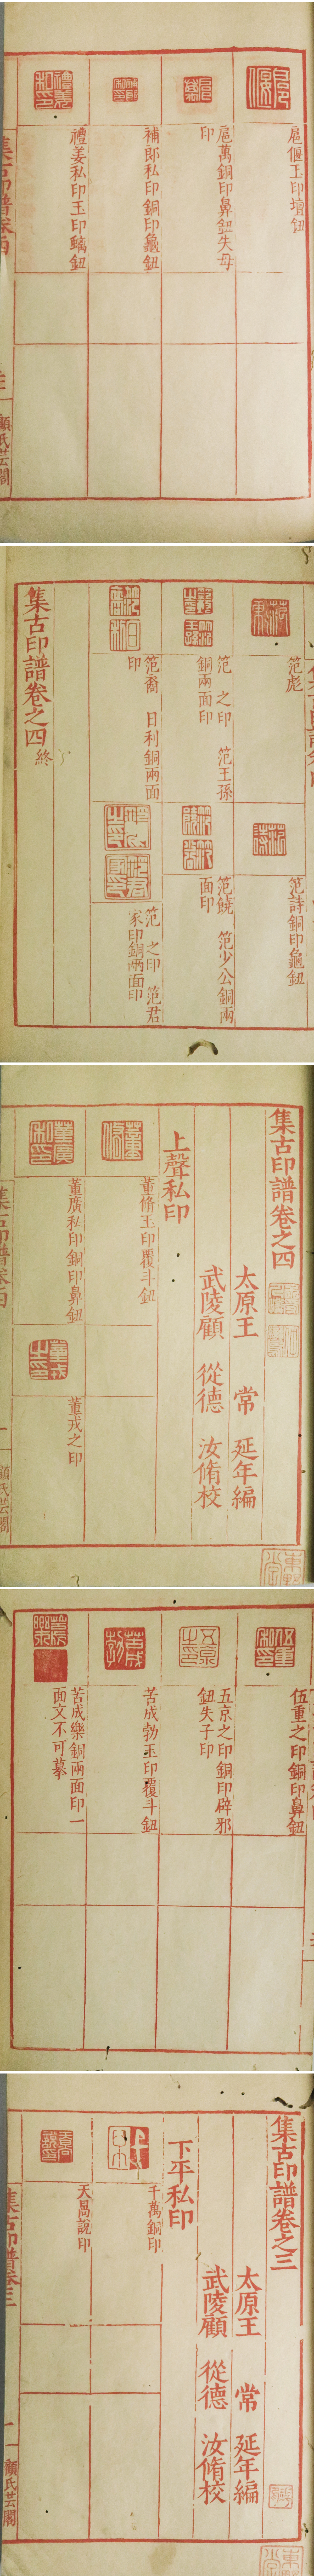 扈偃玉印壇鈕
扈萬銅印鼻鈕失母
印
補郎私印銅印龜鈕
禮姜私印玉印螭鈕
集古印譜卷四
顧氏芸閣
笵彪
笵詩銅印龜鈕
笵 之印 笵王孫
銅兩面印
笵鐃 笵少公銅兩
面印
笵裔 日利銅兩面
印
笵 之印 笵君
家印銅兩面印
集古印譜卷之四 終
集古印譜卷之四
太原王 常 延年編
武陵顧 從德 汝脩校
上聲私印
董脩玉印覆斗鈕
董廣私印銅印鼻鈕
董戎之印
集古印譜卷四
一
顧氏芸閣
伍重之印銅印鼻鈕
五京之印銅印辟邪
鈕失子印
苦成勃玉印覆斗鈕
苦成樂銅兩面印一
面文不可摹
集古印譜卷之三
太原王 常 延年編
武陵顧 從德 汝脩校
下平私印
千萬銅印
天昌說印
集古印譜卷三
一
顧氏芸閣